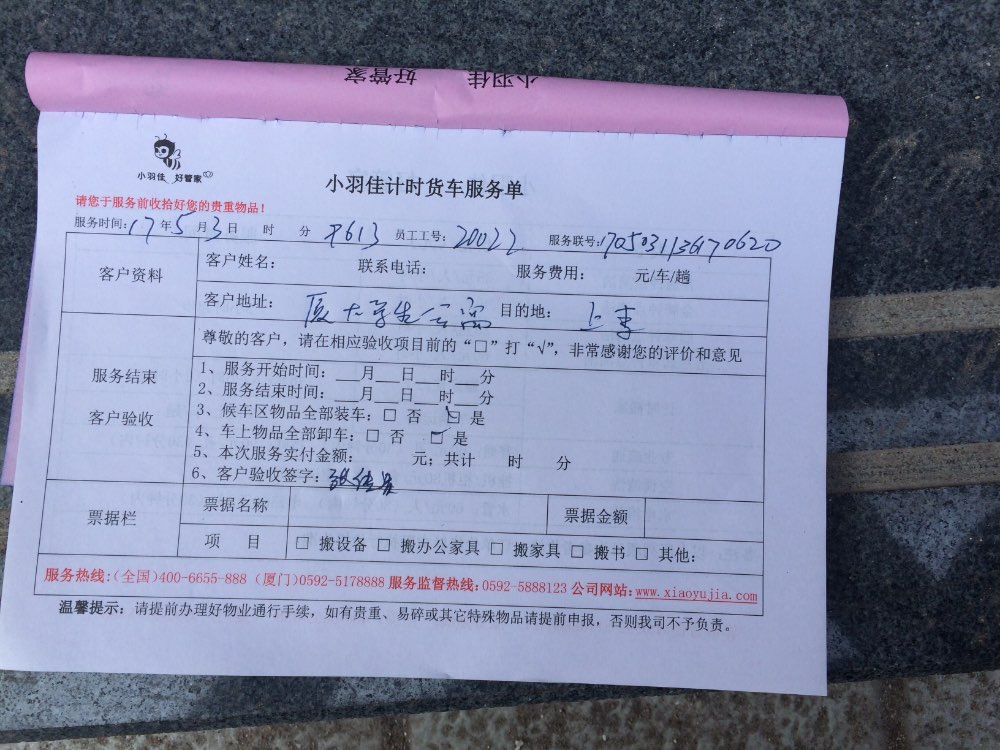 小羽佳 好管家
小羽佳 好管家
小羽佳计时货车服务单
请您于服务前收拾好您的贵重物品！
服务时间：17年5月3日 时 分 员工工号：20022 服务联号：1705031136170620
客户资料 客户姓名： 联系电话： 服务费用： 元/车/趟
客户地址：厦大学生公寓 目的地：上李
尊敬的客户，请在相应验收项目前的“□”打“√”，非常感谢您的评价和意见
服务结束
客户验收
1、服务开始时间：___月___日___时___分
2、服务结束时间：___月___日___时___分
3、候车区物品全部装车：□ 否 ☑ 是
4、车上物品全部卸车：□ 否 ☑ 是
5、本次服务实付金额： 元；共计 时 分
6、客户验收签字：
票据栏 票据名称 票据金额
项 目 □ 搬设备 □ 搬办公家具 □ 搬家具 □ 搬书 □ 其他：
服务热线：（全国）400-6655-888（厦门）0592-5178888 服务监督热线：0592-5888123 公司网站：www.xiaoyujia.com
温馨提示：请提前办理好物业通行手续，如有贵重、易碎或其它特殊物品请提前申报，否则我司不予负责。